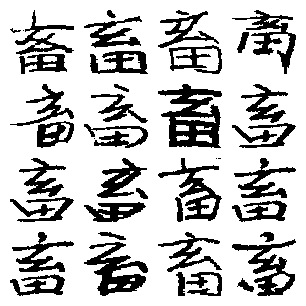 畜畜畜畜
畜畜畜畜
畜畜畜畜
畜畜畜畜